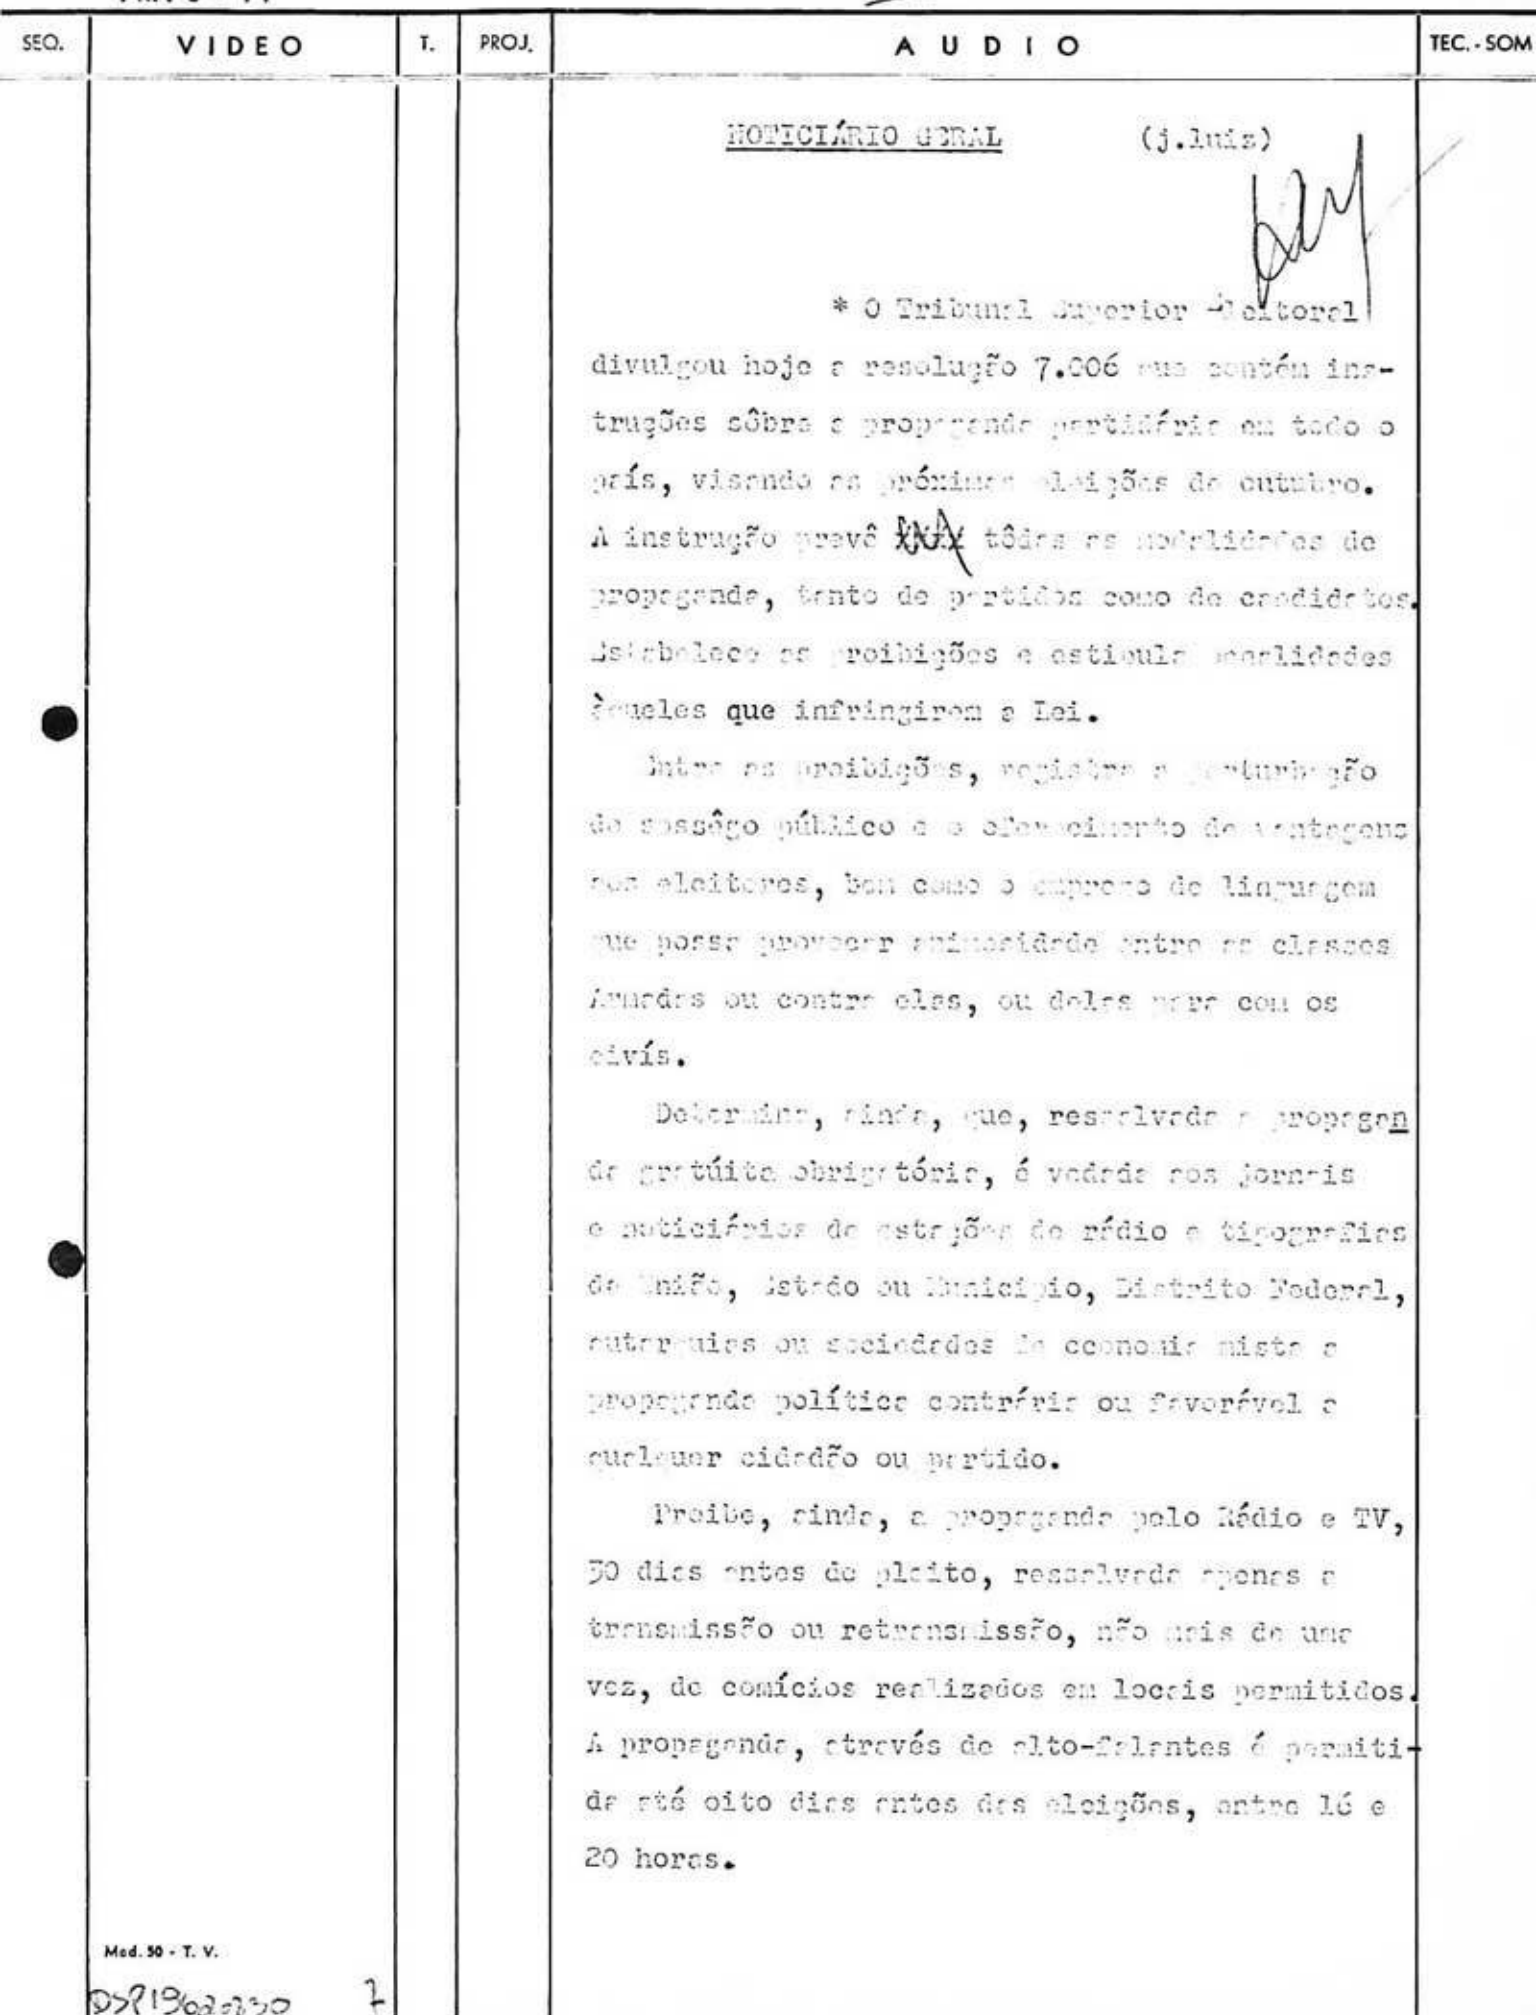 SEQ. VIDEO T. PROJ. AUDIO TEC. - SOM
NOTICIÁRIO GERAL (j.luiz)
* O Tribunal Superior Eleitoral
divulgou hoje a resolução 7.006 que contém ins-
truções sôbre a propaganda partidária em todo o
país, visando as próximas eleições de outubro.
A instrução prevê tôdas as modalidades de
propaganda, tanto de partidos como de candidatos.
Estabelece as proibições e estipula penalidades
àqueles que infringirem a Lei.
Entre as proibições, registra a perturbação
do sossêgo público e o oferecimento de vantagens
aos eleitores, bem como o emprego de linguagem
que possa provocar animosidade entre as classes
Armadas ou contra elas, ou delas para com os
civís.
Determina, ainda, que, ressalvada a propagan
da gratúita obrigatória, é vedada aos jornais
e noticiários de estações de rádio e tipografias
da União, Estado ou Município, Distrito Federal,
autarquias ou sociedades de economia mista a
propaganda política contrária ou favorável a
qualquer cidadão ou partido.
Proibe, ainda, a propaganda pelo Rádio e TV,
30 dias antes do pleito, ressalvada apenas a
transmissão ou retransmissão, não mais de uma
vez, de comícios realizados em locais permitidos.
A propaganda, através de alto-falantes é permiti-
da até oito dias antes das eleições, entre 16 e
20 horas.
Mod. 50 - T. V.
7